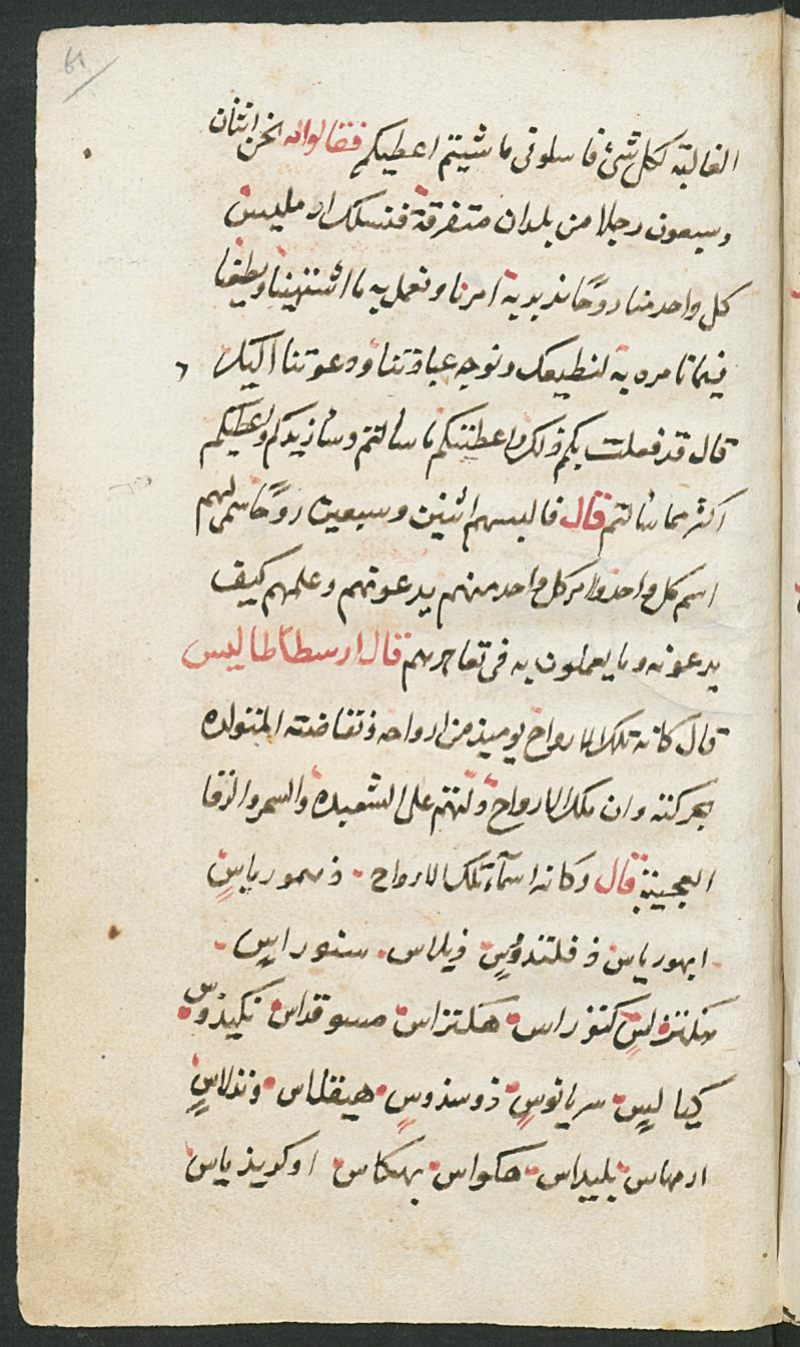 61
الغالبة لكل شئ فاسلونى ما شيتم اعطيكم فقالوا له نحن اثنان
وسبعون رجلا من بلدان متفرقة فنسلك ار مليس
كل واحد منا روحًا ندبر به امرنا ونعمل به ما اشتهينا ويطيعنا
فيما نامره به لنطيعك ونوجه عبادتنا ودعوتنا اليك
قال قد فعلت بكم ذلك واعطيتكم ما سالتم وسازيدكم واعطيكم
اكثر مما سالتم قال فالبسهم اثنين وسبعين روحًا سمى لهم
اسم كل واحد وامر كل واحد منهم يدعوتهم وعلمهم كيف
يدعونه وما يعملون به فى تعاجزهم قال ارسطاطاليس
قال كانه تلك الارواح يوميذ من ارواحه وتفاضته المتولده
بحركته وان تلك الارواح دلتهم على الشعبده والسحر والرقا
العجيبة قال وكانه اسمآء تلك الارواح
ابهورياس ذ فلتندوس فيلاس سنوراس
كنوراس هكتراس مسوقداس نكيذوس
كيا ليس سريانوس ذوسذوس هيقلاس وندلاس
ارهاس بليداس هكواس بهكاس اوكريذياس